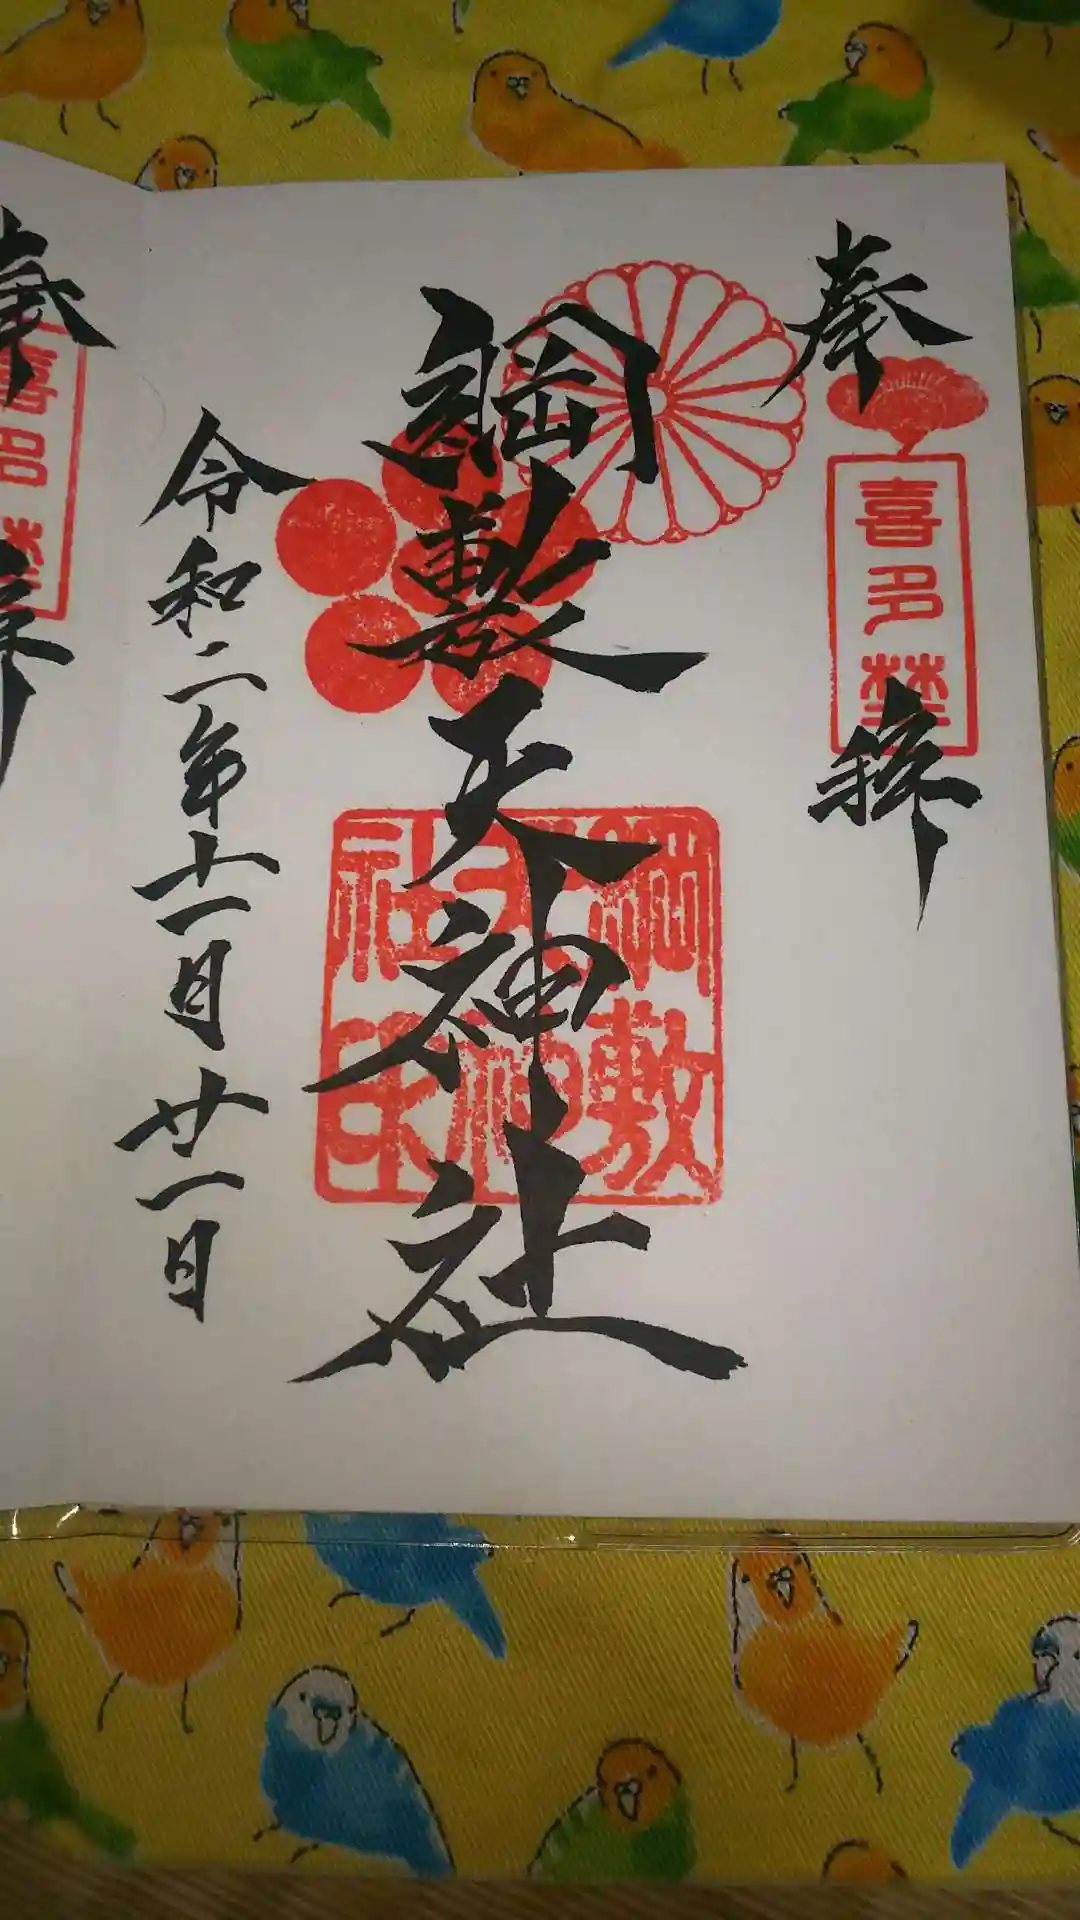 奉拝
喜多埜
綱敷天神社
綱敷
天神
社印
令和二年十一月廿一日
奉拝
喜多埜